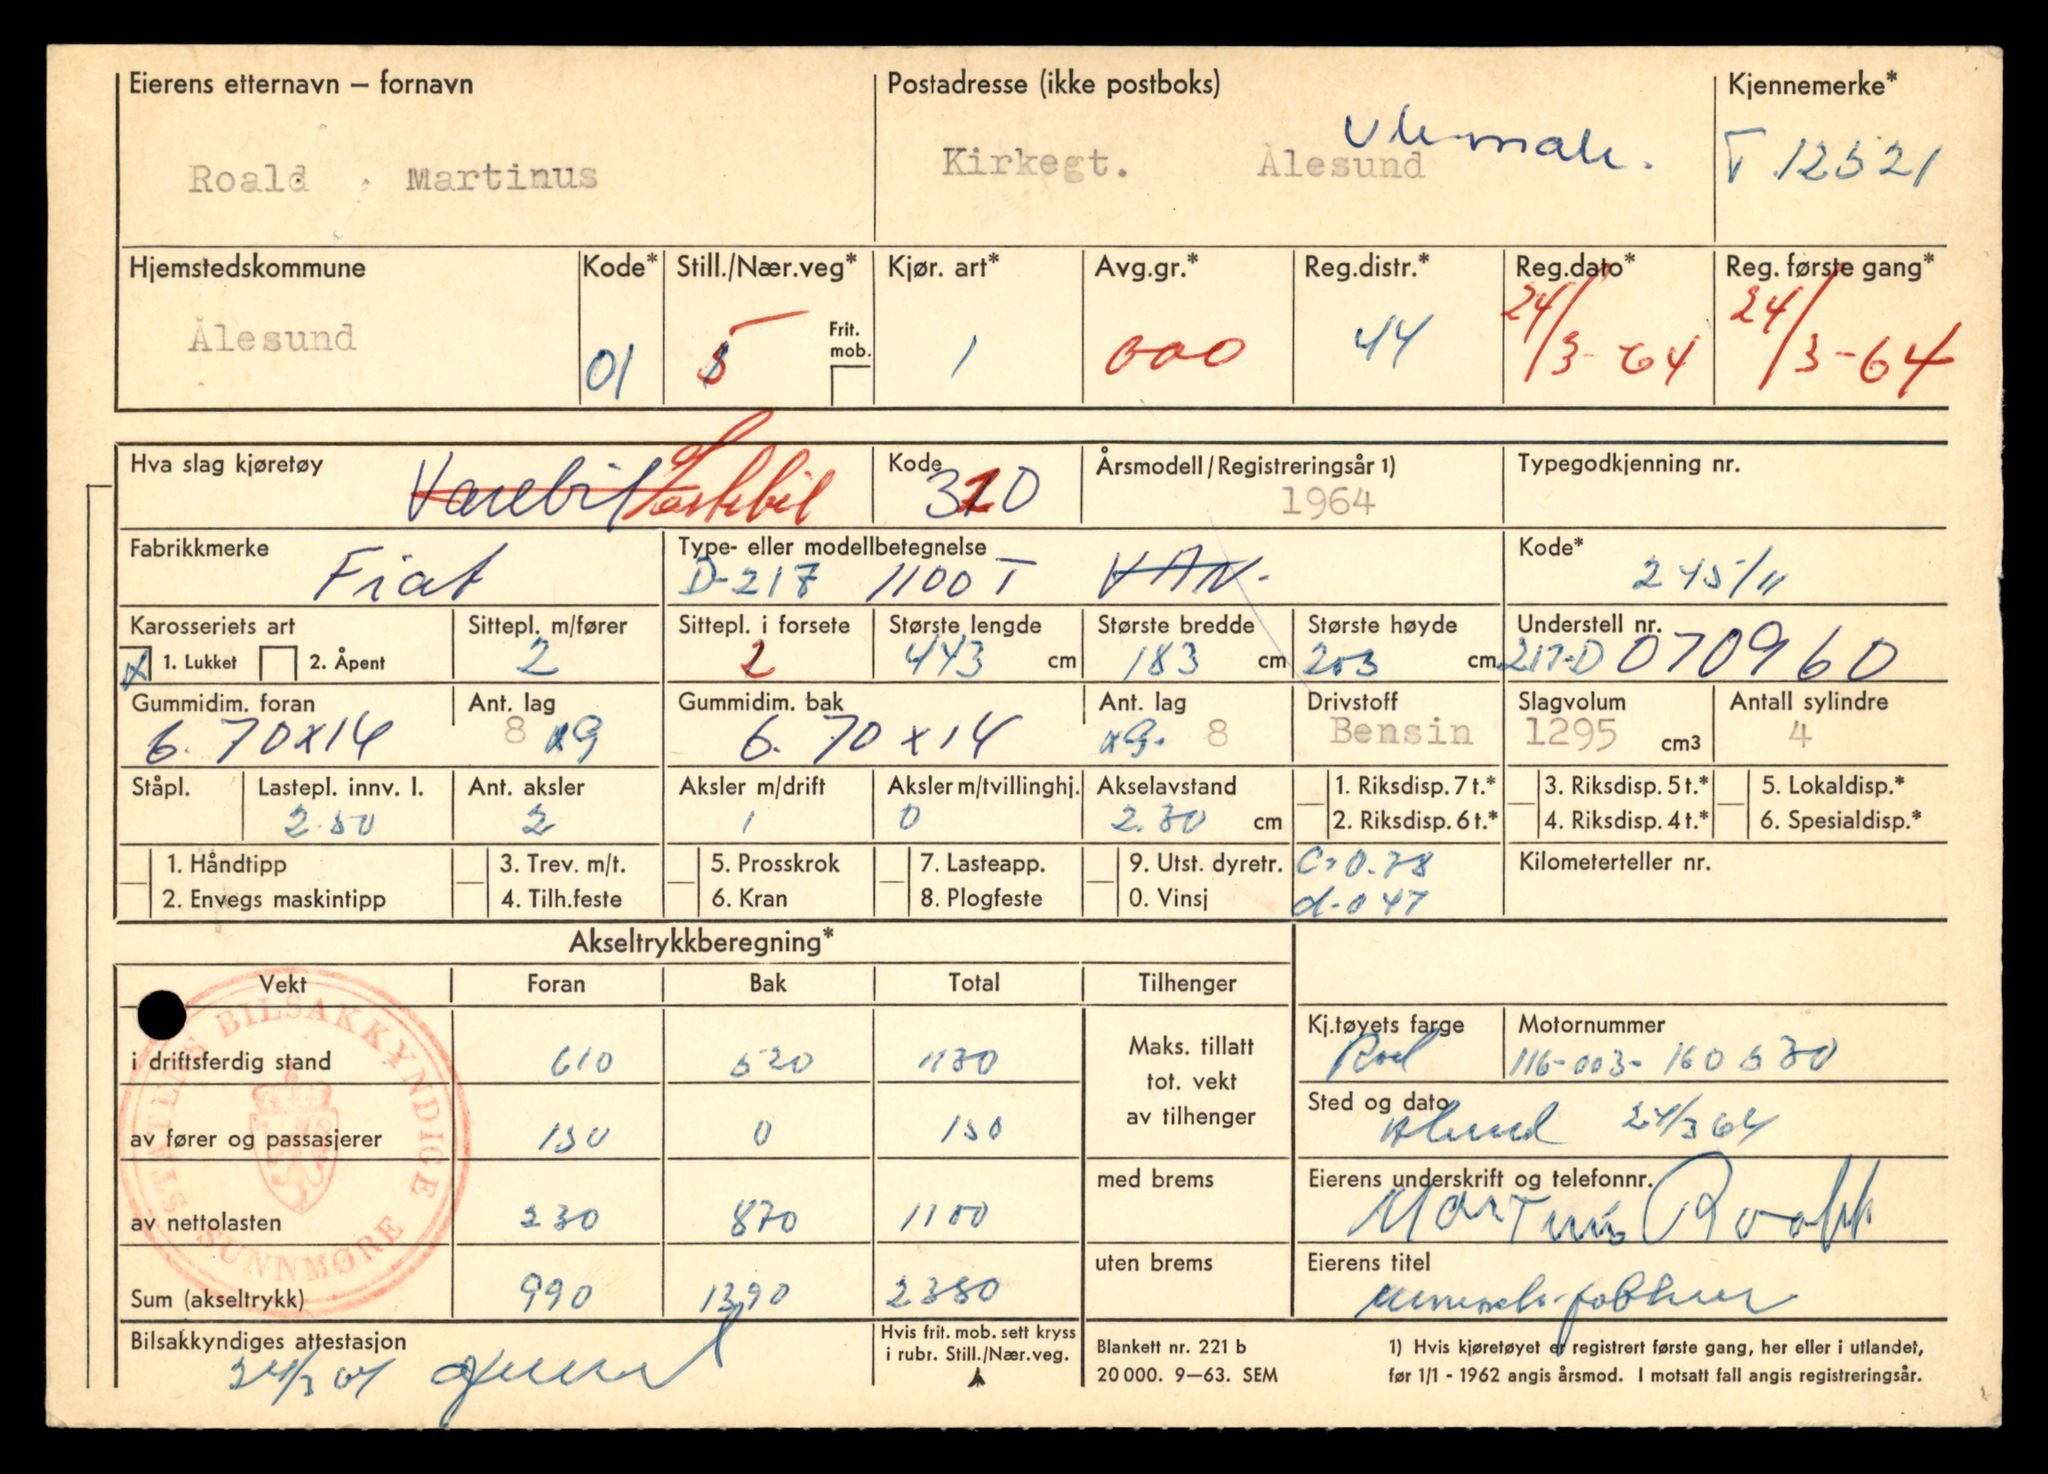 Eierens etternavn – fornavn
Roald Martinus
Postadresse (ikke postboks)
Kirkegt. Ålesund
Kjennemerke*
T 12521
Hjemstedskommune
Ålesund
Kode*
01
Still./Nær.veg*
5
Frit. mob.
Kjør. art*
1
Avg.gr.*
000
Reg.distr.*
44
Reg.dato*
24/3-64
Reg. første gang*
24/3-64
Hva slag kjøretøy
Varebil Lastebil
Kode
320
Årsmodell/Registreringsår 1)
1964
Typegodkjenning nr.
Fabrikkmerke
Fiat
Type- eller modellbetegnelse
D-217 1100 T VAN.
Kode*
245/11
Karosseriets art
x 1. Lukket 2. Åpent
Sittepl. m/fører
2
Sittepl. i forsete
2
Største lengde
443 cm
Største bredde
183 cm
Største høyde
203 cm
Understell nr.
217-D 070960
Gummidim. foran
6.70x14
Ant. lag
8
Gummidim. bak
6.70x14
Ant. lag
8
Drivstoff
Bensin
Slagvolum
1295 cm3
Antall sylindre
4
Ståpl.
Lastepl. innv. l.
2.50
Ant. aksler
2
Aksler m/drift
1
Aksler m/tvillinghj.
0
Akselavstand
2.30 cm
1. Riksdisp. 7 t.*
2. Riksdisp. 6 t.*
3. Riksdisp. 5 t.*
4. Riksdisp. 4 t.*
5. Lokaldisp.*
6. Spesialdisp.*
1. Håndtipp
2. Envegs maskintipp
3. Trev. m/t.
4. Tilh.feste
5. Prosskrok
6. Kran
7. Lasteapp.
8. Plogfeste
9. Utst. dyretr.
0. Vinsj
C=0.78
d-047
Kilometerteller nr.
Akseltrykkberegning*
Vekt Foran Bak Total Tilhenger
i driftsferdig stand 610 520 1130
av fører og passasjerer 150 0 150
av nettolasten 230 870 1100
Sum (akseltrykk) 990 1390 2380
Maks. tillatt
tot. vekt
av tilhenger
med brems
uten brems
STATENS BILSAKKYNDIGE
SUNNMØRE
Kj.tøyets farge
Rød
Motornummer
116-003-160530
Sted og dato
Ålesund 24/3 64
Eierens underskrift og telefonnr.
Martinus Roald
Eierens titel
Bilsakkyndiges attestasjon
24/3 64
Hvis frit. mob. sett kryss
i rubr. Still./Nær.veg.
Blankett nr. 221 b
20 000. 9–63. SEM
1) Hvis kjøretøyet er registrert første gang, her eller i utlandet,
før 1/1 - 1962 angis årsmod. I motsatt fall angis registreringsår.